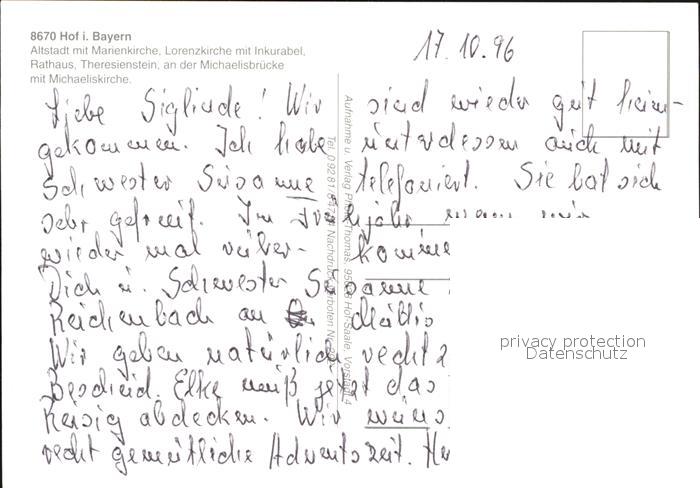 8670 Hof i. Bayern
Altstadt mit Marienkirche, Lorenzkirche mit Inkurabel,
Rathaus, Theresienstein, an der Michaelisbrücke
mit Michaeliskirche.
17.10.96
Liebe Siglinde! Wir sind wieder gut heim-
gekommen. Ich habe unterdessen auch mit
Schwester Susanne telefoniert. Sie hat sich
sehr gefreut. Im Frühjahr wenn wir
wieder mal rüber- komme
Dich u. Schwester Susanne
Reichenbach an
Wir geben natürlich recht z
Bescheid. Elke muß jetzt das
Reisig abdecken. Wir wüns
recht gemütliche Adventszeit. He
Aufnahme u. Verlag Thomas, Hof-Saale, Vorstadt 4
Tel. 09281/ Nachdruck verboten Nr.
privacy protection
Datenschutz